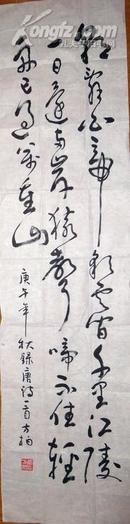 朝辞白帝彩云间千里江陵
一日还两岸猿声啼不住轻
舟已过万重山
庚午年秋録唐诗一首方